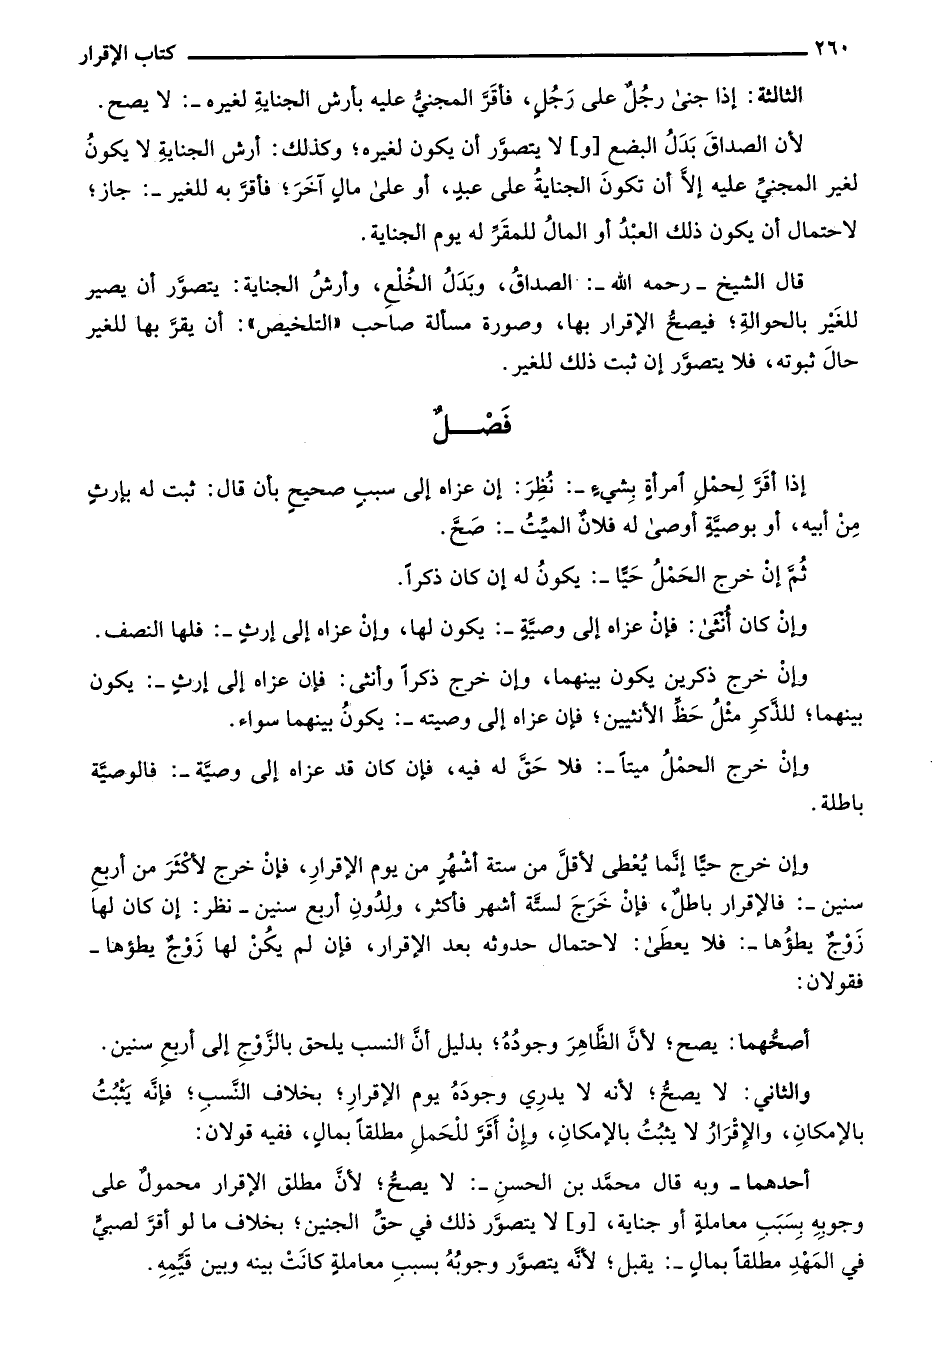 ٢٦٠ كتاب الإقرار
الثالثة: إذا جنىٰ رجُلٌ على رَجُلٍ، فأقَرَّ المجنيُّ عليه بأرش الجنايةِ لغيره ـ: لا يصح.
لأن الصداقَ بَدَلُ البضع [و] لا يتصوَّر أن يكون لغيره؛ وكذلك: أرش الجنايةِ لا يكونُ
لغير المجنيِّ عليه إلاَّ أن تكونَ الجنايةُ على عبدٍ، أو علىٰ مالٍ آخَرَ؛ فأقرَّ به للغير ـ: جاز؛
لاحتمال أن يكون ذلك العبْدُ أو المالُ للمقَرِّ له يوم الجناية.
قال الشيخ ـ رحمه الله ـ: الصداقُ، وبَدَلُ الخُلْعِ، وأرشُ الجناية: يتصوَّر أن يصير
للغَيْر بالحوالةِ؛ فيصحُّ الإقرار بها، وصورة مسألة صاحب «التلخيص»: أن يقرَّ بها للغير
حالَ ثبوته، فلا يتصوَّر إن ثبت ذلك للغير.
فَصْـــلٌ
إذا أقَرَّ لِحمْلِ ٱمرأةٍ بِشيءٍ ـ: نُظِرَ: إن عزاه إلى سببٍ صحيحٍ بأن قال: ثبت له بإرثٍ
مِنْ أبيه، أو بوصيَّةٍ أوصىٰ له فلانٌ الميِّتُ ـ: صَحَّ.
ثُمَّ إنْ خرج الحَمْلُ حَيًّا ـ: يكونُ له إن كان ذكراً.
وإنْ كان أُنْثَىٰ: فإنْ عزاه إلى وصيَّةٍ ـ: يكون لها، وإنْ عزاه إلى إرثٍ ـ: فلها النصف.
وإنْ خرج ذكرين يكون بينهما، وإن خرج ذكراً وأنثى: فإن عزاه إلى إرثٍ ـ: يكون
بينهما؛ للذَّكرِ مثْلُ حَظِّ الأنثيين؛ فإن عزاه إلى وصيته ـ: يكونُ بينهما سواء.
وإنْ خرج الحمْلُ ميتاً ـ: فلا حَقَّ له فيه، فإن كان قد عزاه إلى وصيَّة ـ: فالوصيَّة
باطلة.
وإن خرج حيًّا إنَّما يُعْطى لأقلَّ من ستة أشْهُرٍ من يوم الإقرارِ، فإنْ خرج لأكْثَرَ من أربعِ
سنين ـ: فالإقرار باطلٌ، فإنْ خَرَجَ لستَّة أشهر فأكثر، ولِدُونِ أربع سنين ـ نظر: إن كان لها
زَوْجٌ يطؤُها ـ: فلا يعطَىٰ: لاحتمال حدوثه بعد الإقرار، فإن لم يكُنْ لها زَوْجٌ يطؤها ـ
فقولان:
أصحُّهما: يصح؛ لأنَّ الظَّاهِرَ وجودُهُ؛ بدليل أنَّ النسب يلحق بالزَّوْجِ إلى أربعِ سنين.
والثاني: لا يصحُّ؛ لأنه لا يدرِي وجودَهُ يوم الإقرارِ؛ بخلاف النَّسبِ؛ فإنَّه يَثْبُتُ
بالإمكانِ، والإِقْرَارُ لا يثبُتُ بالإمكانِ، وإنْ أقَرَّ للْحَملِ مطلقاً بمالٍ، ففيه قولان:
أحدهما ـ وبه قال محمَّد بن الحسنِ ـ: لا يصحُّ؛ لأنَّ مطلق الإقرار محمولٌ على
وجوبِهِ بِسَبَبِ معاملةٍ أو جناية، [و] لا يتصوَّر ذلك في حقِّ الجنين؛ بخلاف ما لو أقرَّ لصبيٍّ
في المَهْدِ مطلقاً بمالٍ ـ: يقبل؛ لأنَّه يتصوَّر وجوبُهُ بسببِ معاملةٍ كانَتْ بينه وبين قَيِّمِهِ.